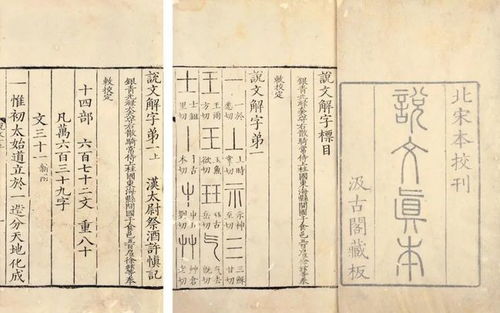 北宋本校刊
說文眞本
汲古閣藏板
說文解字標目
銀青光祿大夫守右散騎常侍上柱國東海縣開國子食邑五百戶徐鉉等奉
敕校定
說文解字弟一
一 於悉切 上 時掌切 示 神至切 三 穌甘切
王 雨方切 玉 魚欲切 玨 古岳切 气 去既切
士 鉏里切 丨 古本切 屮 丑列切 艸 倉老切
說文解字弟一上 漢太尉祭酒許慎記
銀青光祿大夫守右散騎常侍上柱國東海縣開國子食邑五百戶徐鉉等奉
敕校定
十四部 六百七十二文 重八十
凡萬六百三十九字
文三十一 新附
一 惟初太始道立於一造分天地化成